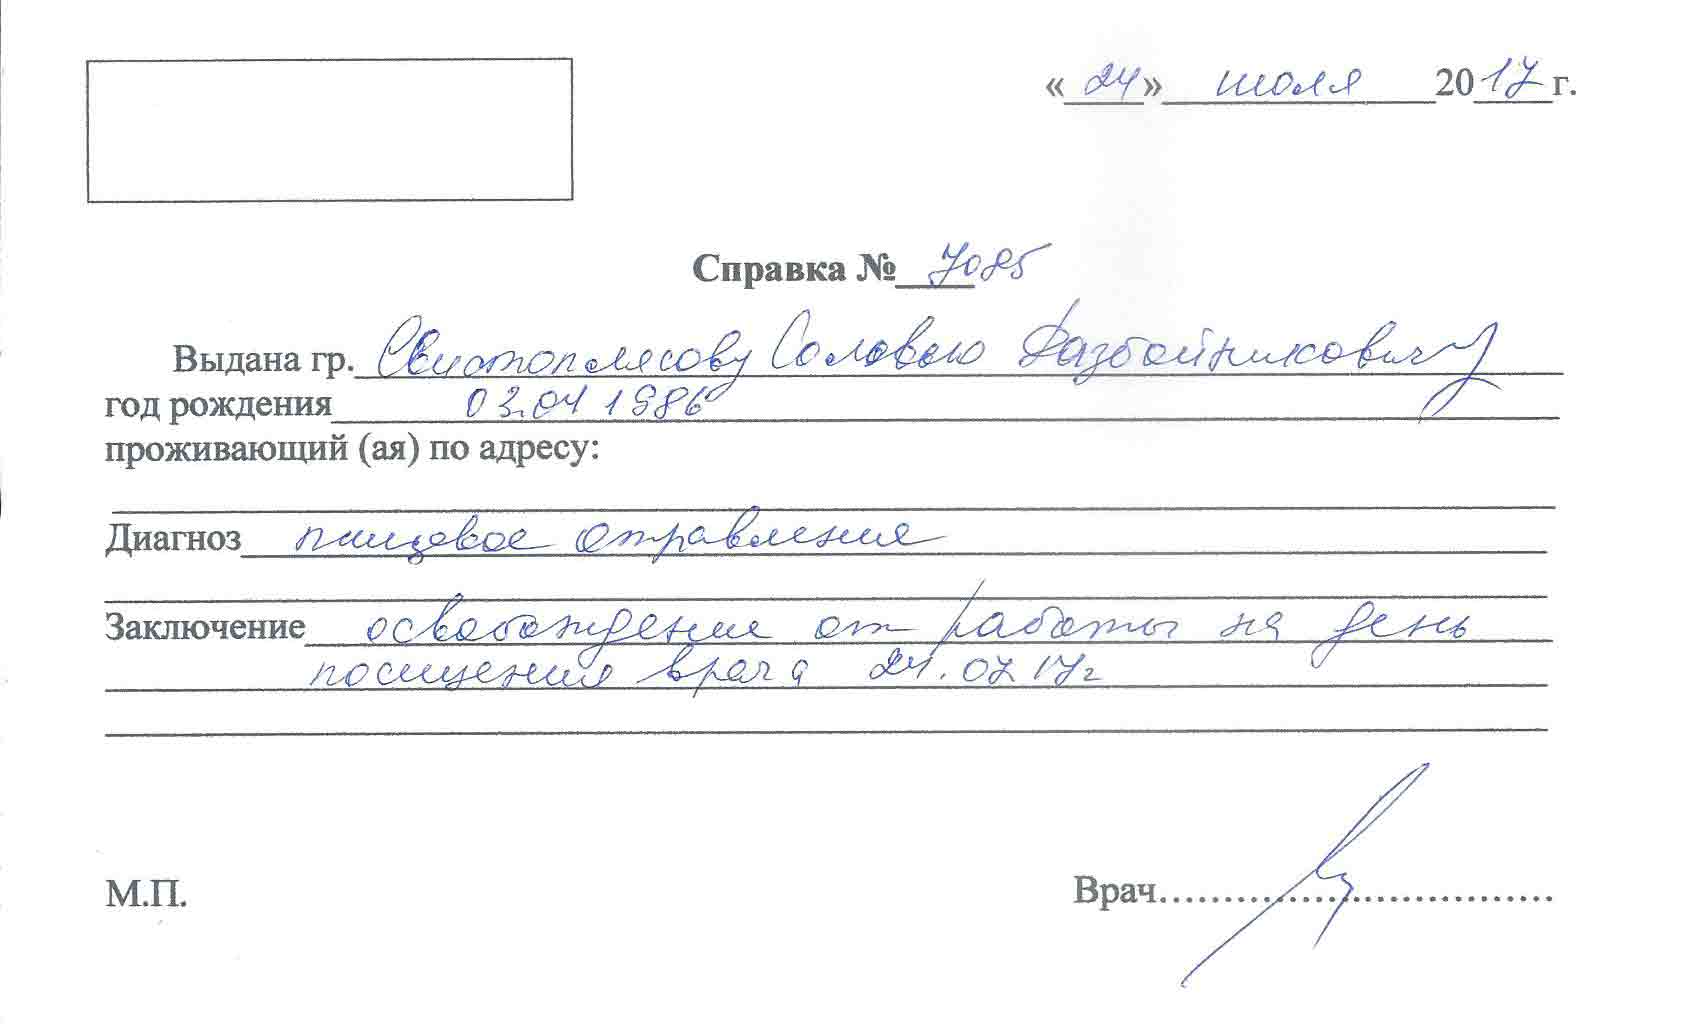 « 24 » июля 2017 г.
Справка № 7085
Выдана гр. Свистоплясову Соловью Разбойниковичу
год рождения 03.04 1986
проживающий (ая) по адресу:
Диагноз пищевое отравления
Заключение освобождение от работы на день
посищения врача 24.07 17г
М.П.
Врач